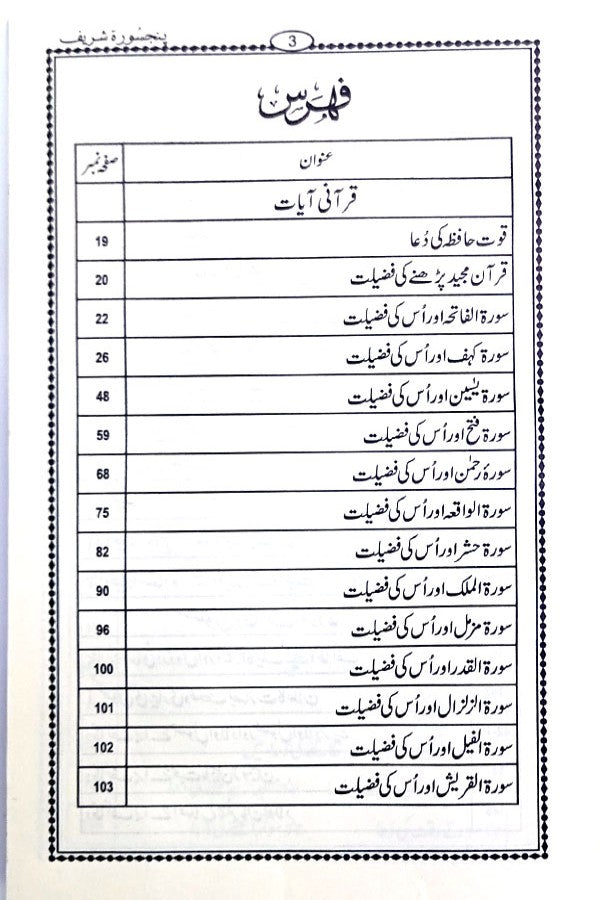 پنجسُورۃ شریف
3
فہرس
عنوان صفحہ نمبر
قرآنی آیات
قوت حافظہ کی دُعا 19
قرآن مجید پڑھنے کی فضیلت 20
سورۃ الفاتحہ اور اُس کی فضیلت 22
سورۃ کہف اور اُس کی فضیلت 26
سورۃ یٰسین اور اُس کی فضیلت 48
سورۃ فتح اور اُس کی فضیلت 59
سورۂ رحمٰن اور اُس کی فضیلت 68
سورۃ الواقعہ اور اُس کی فضیلت 75
سورۃ حشر اور اُس کی فضیلت 82
سورۃ الملک اور اُس کی فضیلت 90
سورۃ مزمل اور اُس کی فضیلت 96
سورۃ القدر اور اُس کی فضیلت 100
سورۃ الزلزال اور اُس کی فضیلت 101
سورۃ الفیل اور اُس کی فضیلت 102
سورۃ القریش اور اُس کی فضیلت 103